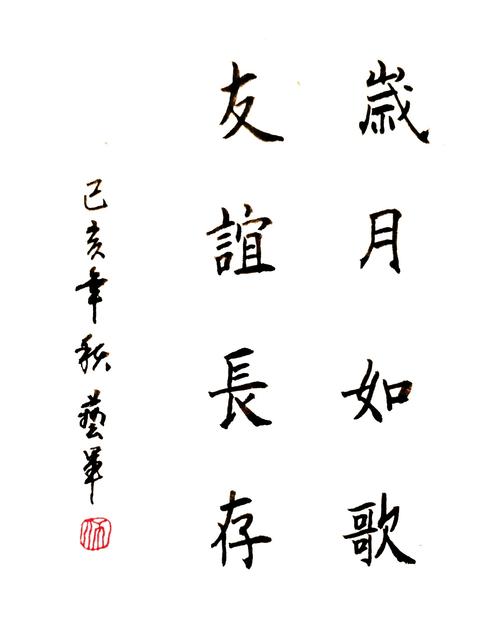 歳月如歌
友誼長存
己亥年秋藝軍